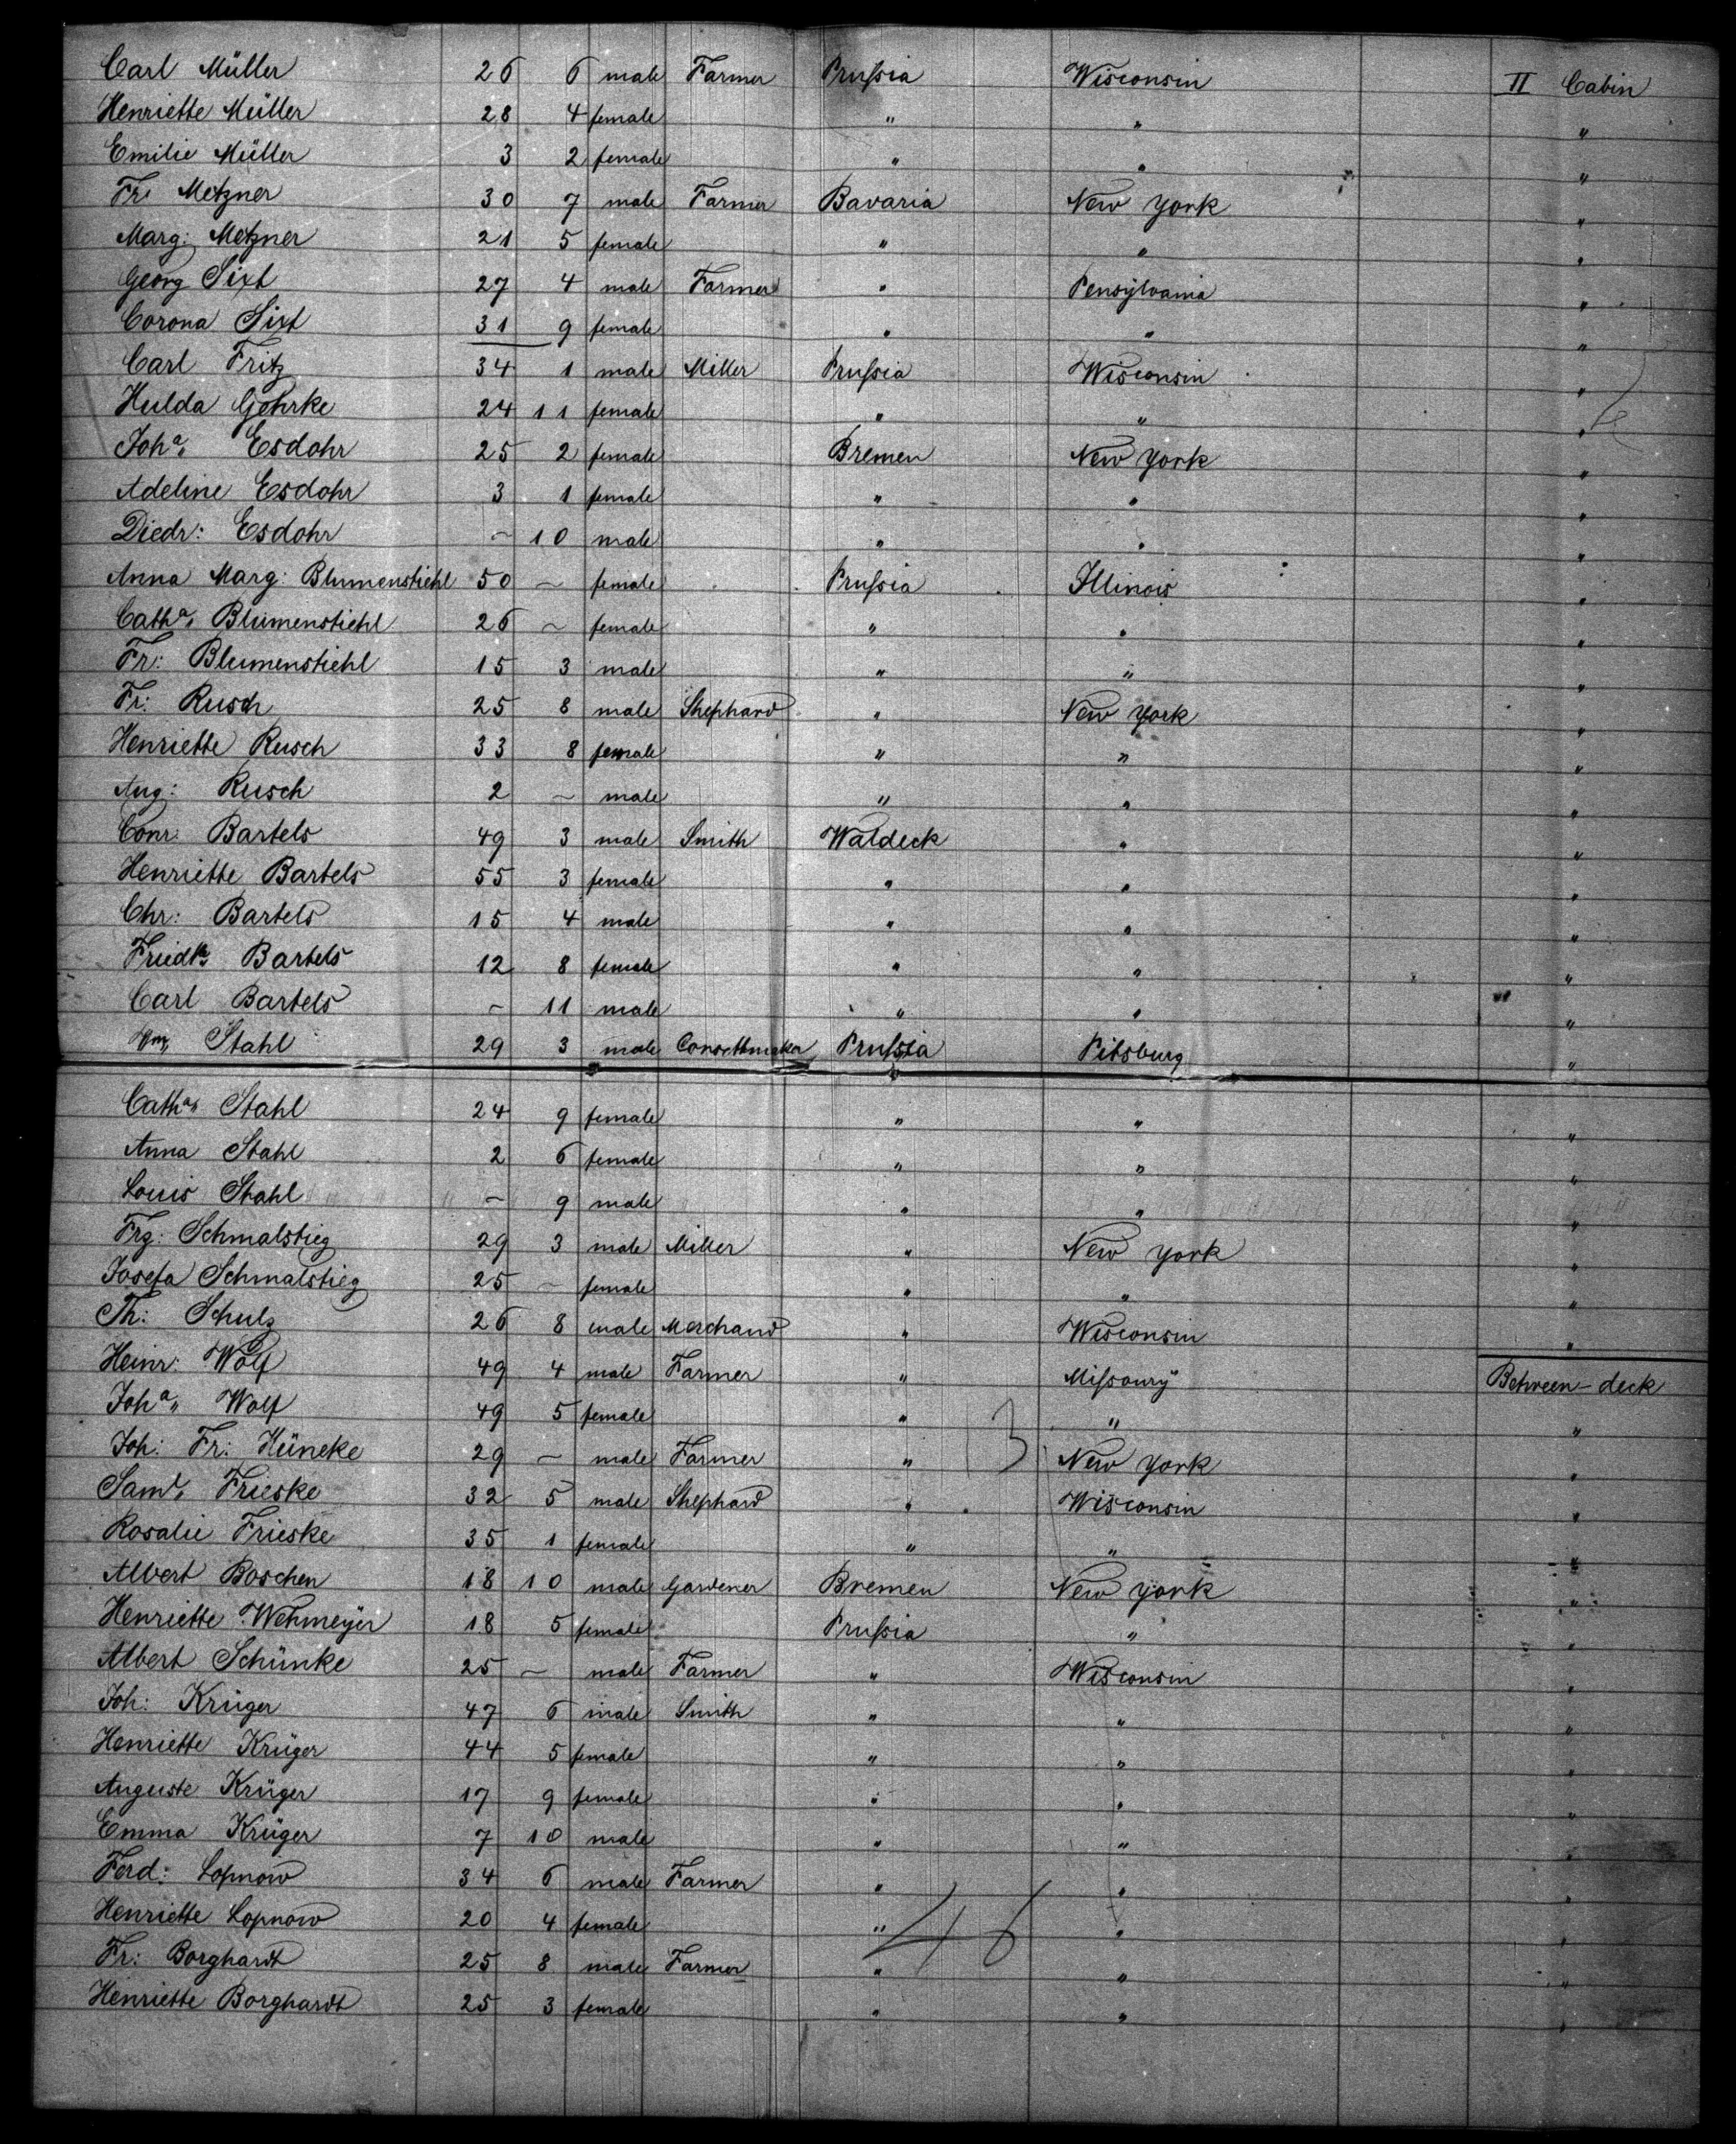 Carl Müller 26 6 male Farmer Prußia Wisconsin II Cabin
Henriette Müller 28 4 female " " "
Emilie Müller 3 2 female " " "
Fr: Metzner 30 7 male Farmer Bavaria New York "
Marg: Metzner 21 5 female " " "
Georg Sixt 27 4 male Farmer " Pensylvania "
Corona Sixt 31 9 female " " "
Carl Fritz 34 1 male Miller Prußia Wisconsin "
Hulda Gehrke 24 11 female " " "
Joha" Esdohr 25 2 female Bremen New York "
Adeline Esdohr 3 1 female " " "
Diedr: Esdohr ~ 10 male " " "
Anna Marg: Blumenstiehl 50 ~ female Prußia Illinois "
Catha" Blumenstiehl 26 ~ female " " "
Fr: Blumenstiehl 15 3 male " " "
Fr: Rusch 25 8 male Shephard " New York "
Henriette Rusch 33 8 female " " "
Aug: Rusch 2 ~ male " " "
Conr: Bartels 49 3 male Smith Waldeck " "
Henriette Bartels 55 3 female " " "
Chr: Bartels 15 4 male " " "
Friedke Bartels 12 8 female " " "
Carl Bartels ~ 11 male " " "
Wm" Stahl 29 3 male Corsettmaker Prußia Pitsburg "
Catha" Stahl 24 9 female " " "
Anna Stahl 2 6 female " " "
Louis Stahl ~ 9 male " " "
Frz: Schmalstieg 29 3 male Miller " New York "
Josefa Schmalstieg 25 ~ female " " "
Th: Schulz 26 8 male Merchand " Wisconsin "
Heinr: Wolf 49 4 male Farmer " Mißoury Between-deck
Joha" Wolf 49 5 female " " "
Joh: Fr: Hüneke 29 ~ male Farmer " 13 New York "
Saml" Frieske 32 5 male Shephard " Wisconsin "
Rosalie Frieske 35 1 female " " "
Albert Boschen 18 10 male Gardener Bremen New York "
Henriette Wehmeyer 18 5 female Prußia " "
Albert Schünke 25 ~ male Farmer " Wisconsin "
Joh: Krüger 47 6 male Smith " " "
Henriette Krüger 44 5 female " " "
Auguste Krüger 17 9 female " " "
Emma Krüger 7 10 male " " "
Ferd: Lopnow 34 6 male Farmer " " "
Henriette Lopnow 20 4 female " 46 " "
Fr: Borghardt 25 8 male Farmer " " "
Henriette Borghardt 25 3 female " " "